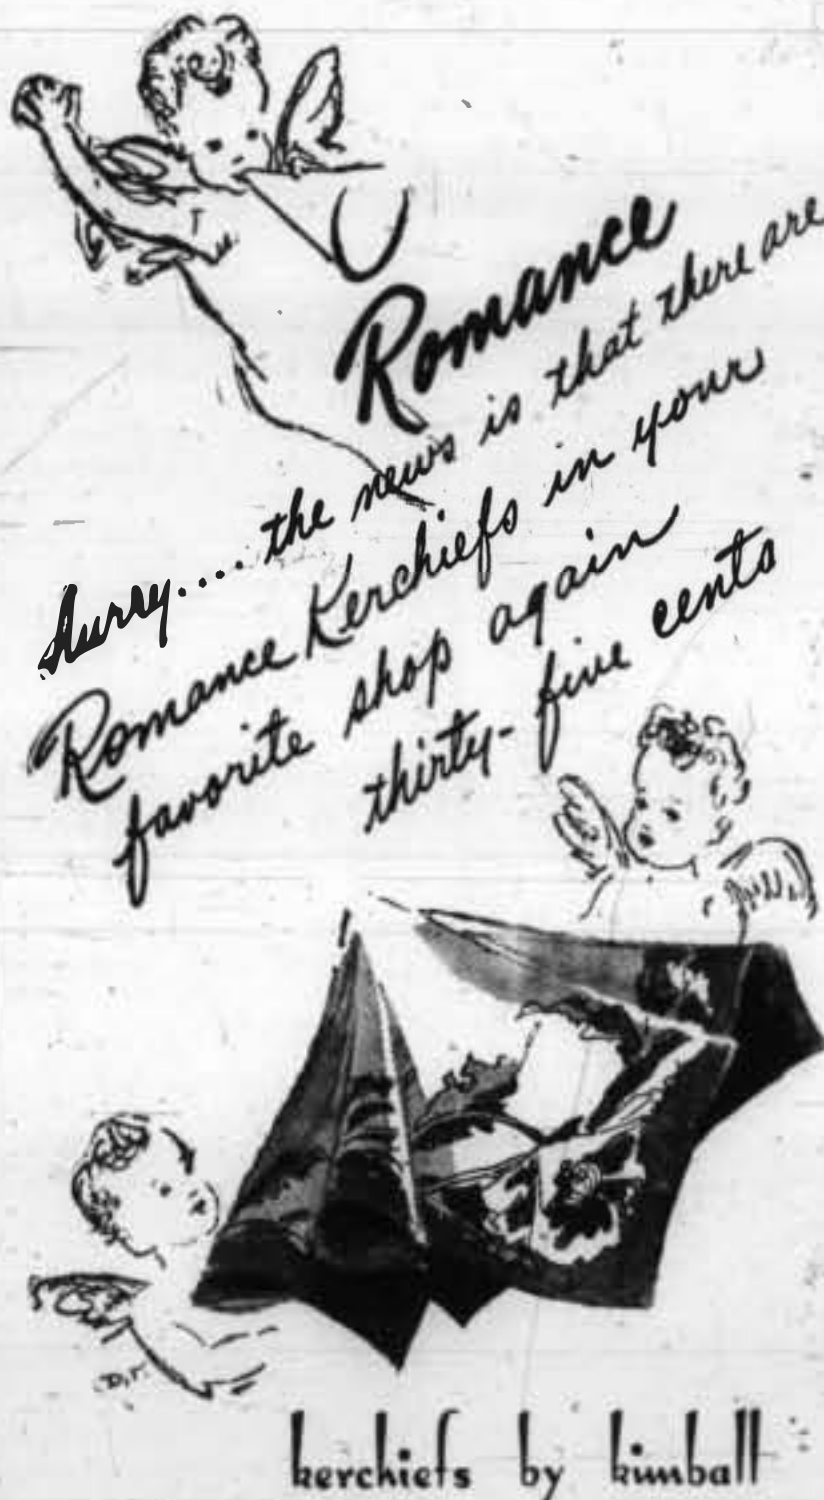 Romance
Hurry.... the news is that there are
Romance Kerchiefs in your
favorite shop again
thirty-five cents
kerchiefs by kimball